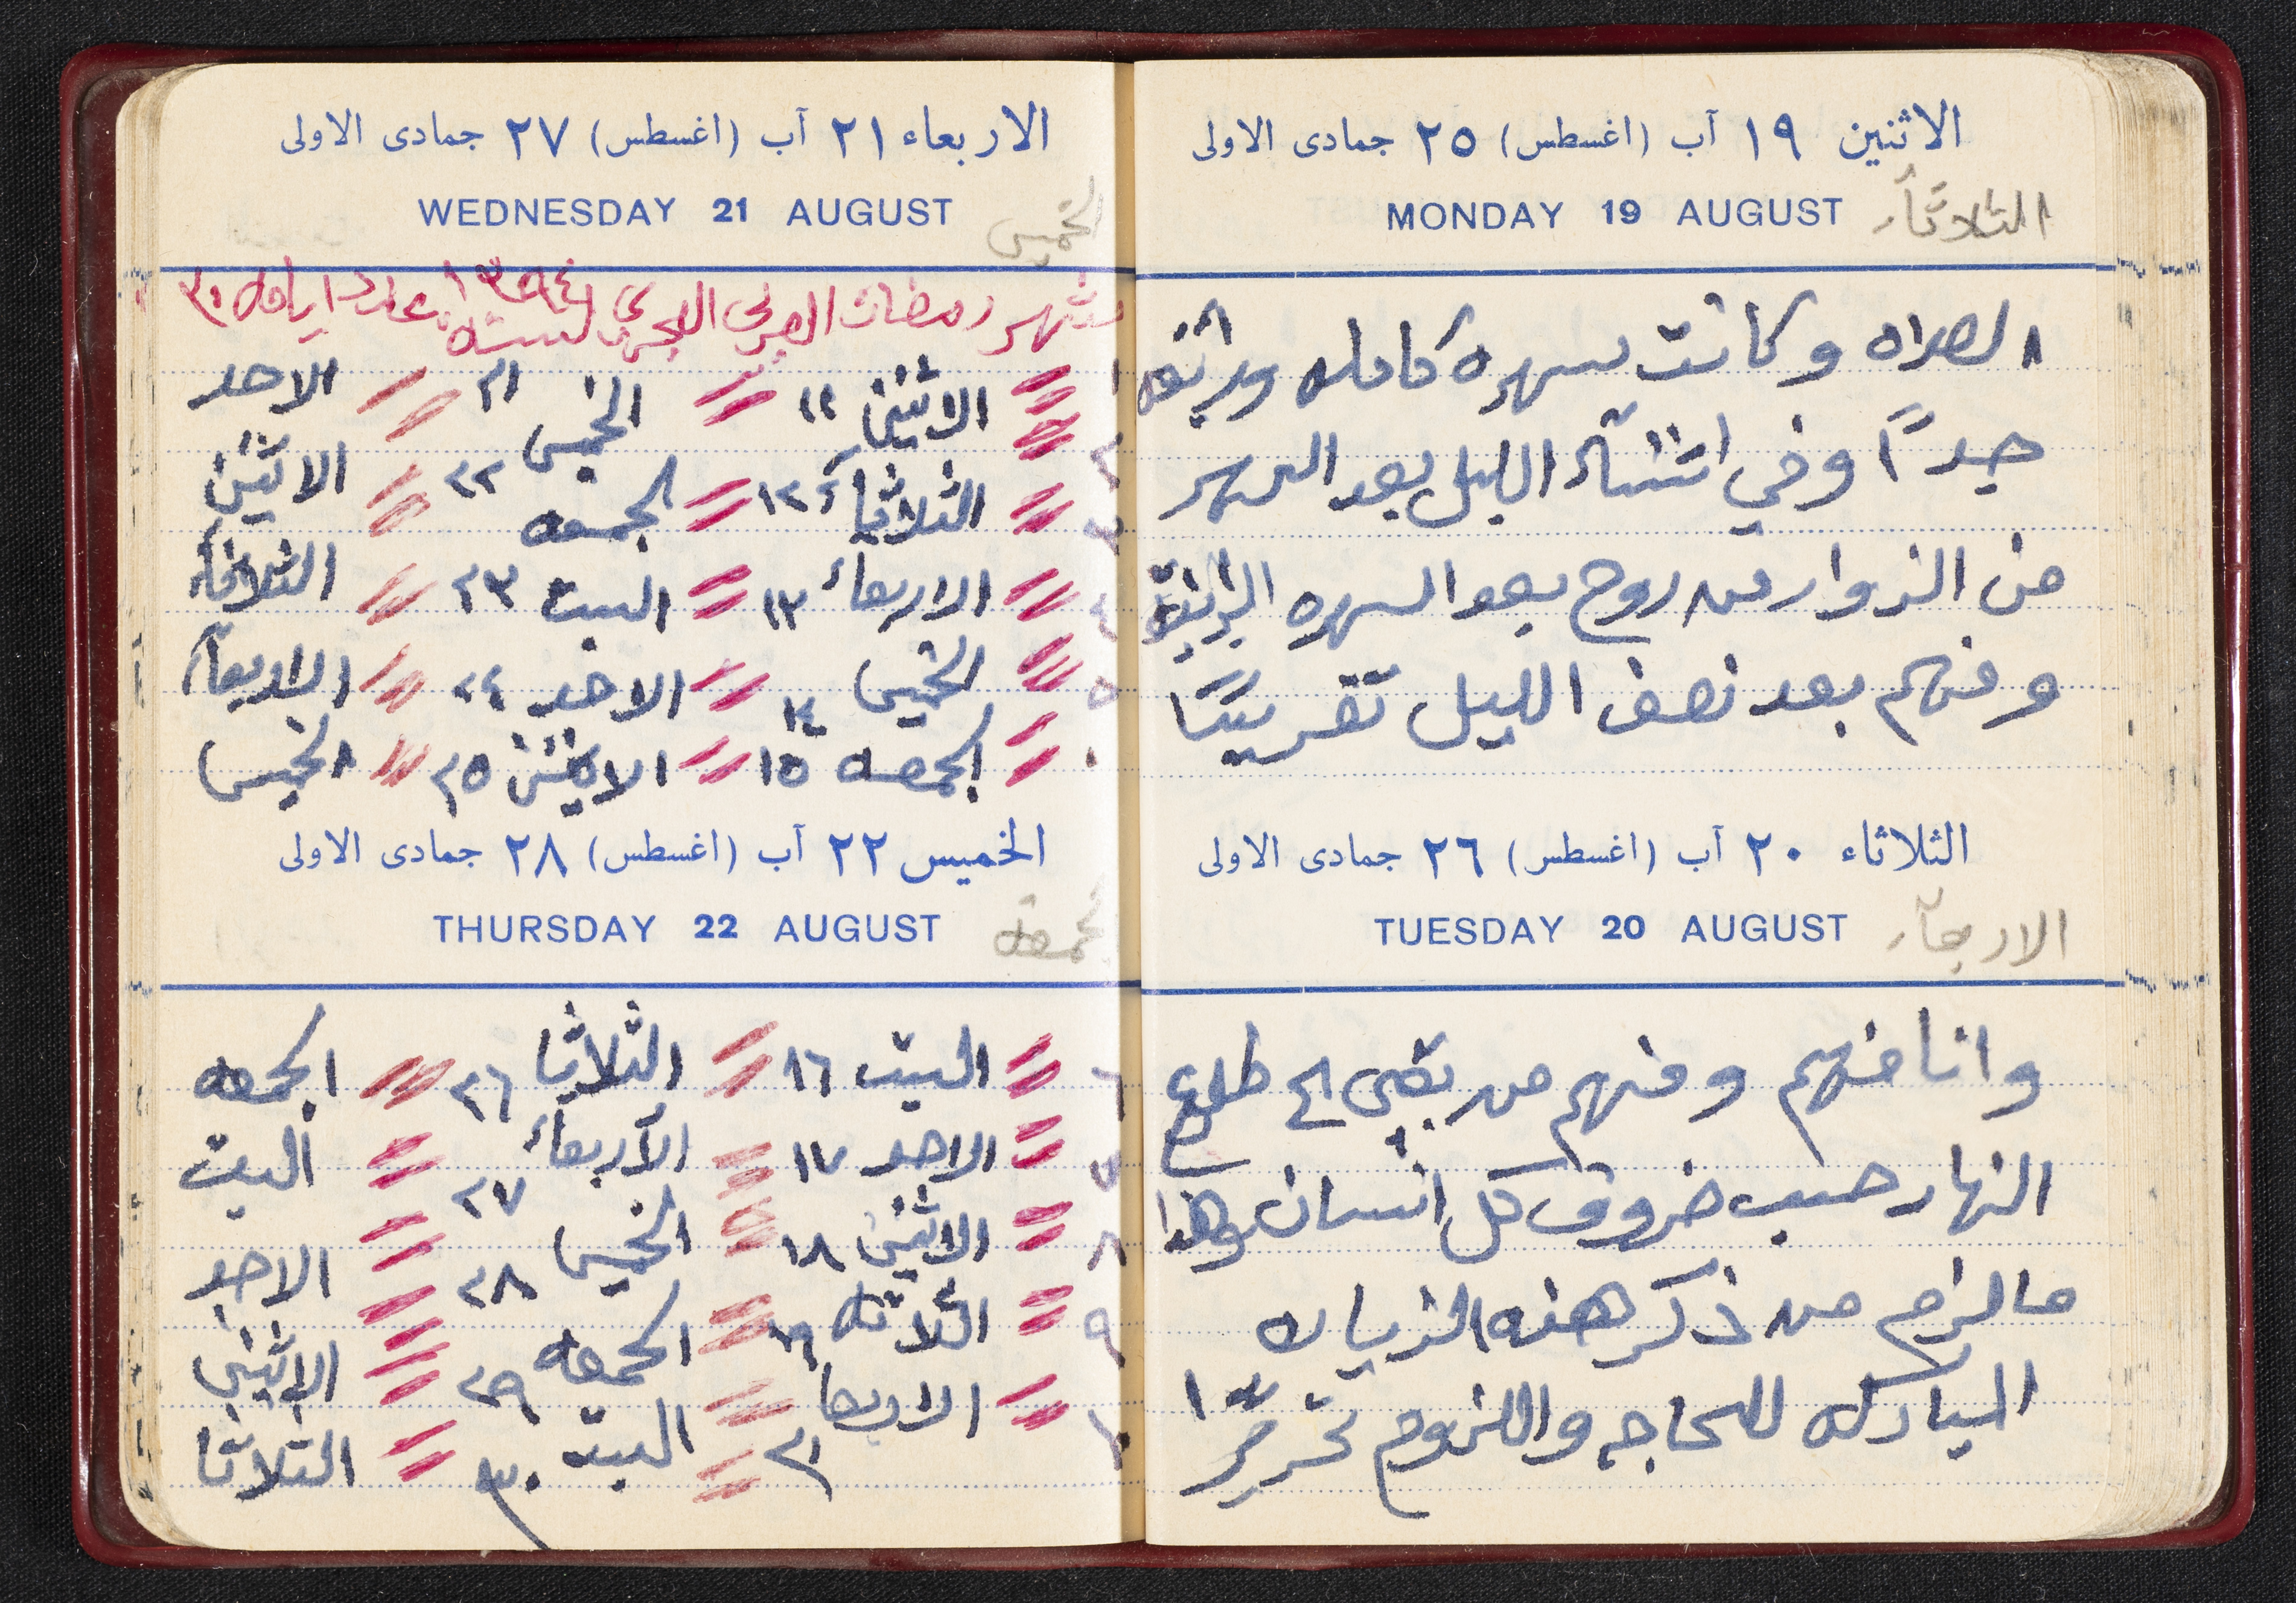 الاثنين ١٩ آب (اغسطس) ٢٥ جمادى الاولى
MONDAY 19 AUGUST
الثلاثاء
الصلاه وكانت سهره كامله ورائعه
جداً وفي اثناء الليل بعد السهر
من الزوار من روح بعد السهره
ومنهم بعد نصف الليل تقريبًا
الثلاثاء ٢٠ آب (اغسطس) ٢٦ جمادى الاولى
TUESDAY 20 AUGUST
الاربعاء
وانا منهم ومنهم من بقى الى طلوع
النهار حسب ضروف كل انسان وهذا
مالزم من ذكر هذه الزياره
المباركه للحاجه واللزوم تحريرًا
الاربعاء ٢١ آب (اغسطس) ٢٧ جمادى الاولى
WEDNESDAY 21 AUGUST
الخميس
شهر رمضان العربي الهجري لسنة ١٣٩٤ عدد ايامه ٣٠
١ الاثنين ١١ الخميس ٢١ الاحد
٢ الثلاثاء ١٢ الجمعه ٢٢ الاثنين
٣ الاربعاء ١٣ السبت ٢٣ الثلاثاء
٤ الخميس ١٤ الاحد ٢٤ الاربعاء
٥ الجمعه ١٥ الاثنين ٢٥ الخميس
الخميس ٢٢ آب (اغسطس) ٢٨ جمادى الاولى
THURSDAY 22 AUGUST
الجمعه
٦ السبت ١٦ الثلاثا ٢٦ الجمعه
٧ الاحد ١٧ الاربعاء ٢٧ السبت
٨ الاثنين ١٨ الخميس ٢٨ الاحد
٩ الثلاثه ١٩ الجمعه ٢٩ الاثنين
١٠ الاربعا ٢٠ السبت ٣٠ الثلاثا